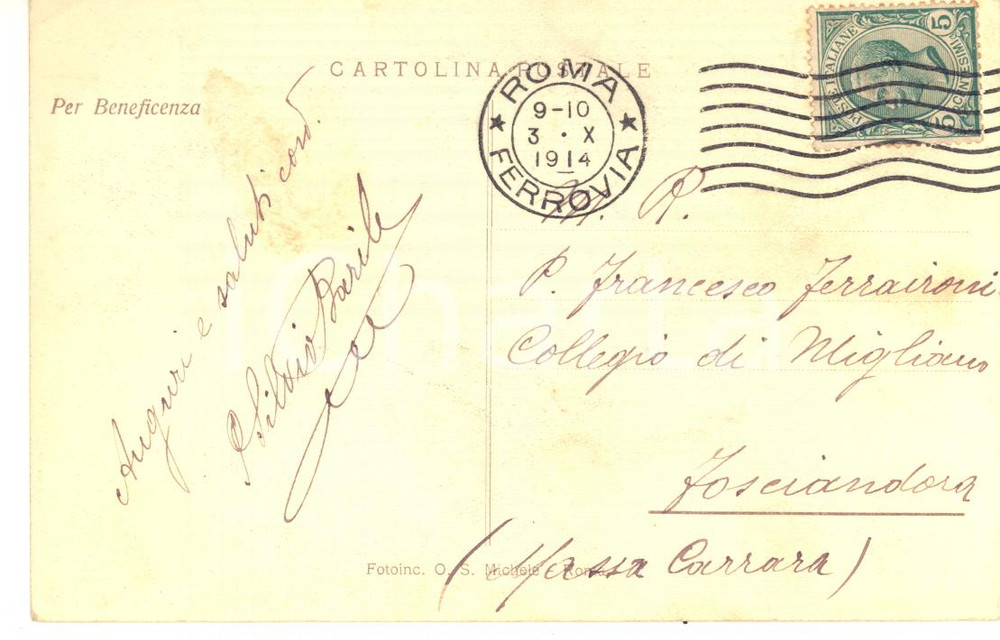 CARTOLINA POSTALE
Per Beneficenza
POSTE ITALIANE
CENTESIMI
5
5
ROMA
9-10
3 · X
1914
FERROVIA
Auguri e saluti cord.
Silvio Barile
R.
P. Francesco Ferraironi
Collegio di Migliano
Fosciandora
(Massa Carrara)
Fotoinc. O. S. Michele - Roma